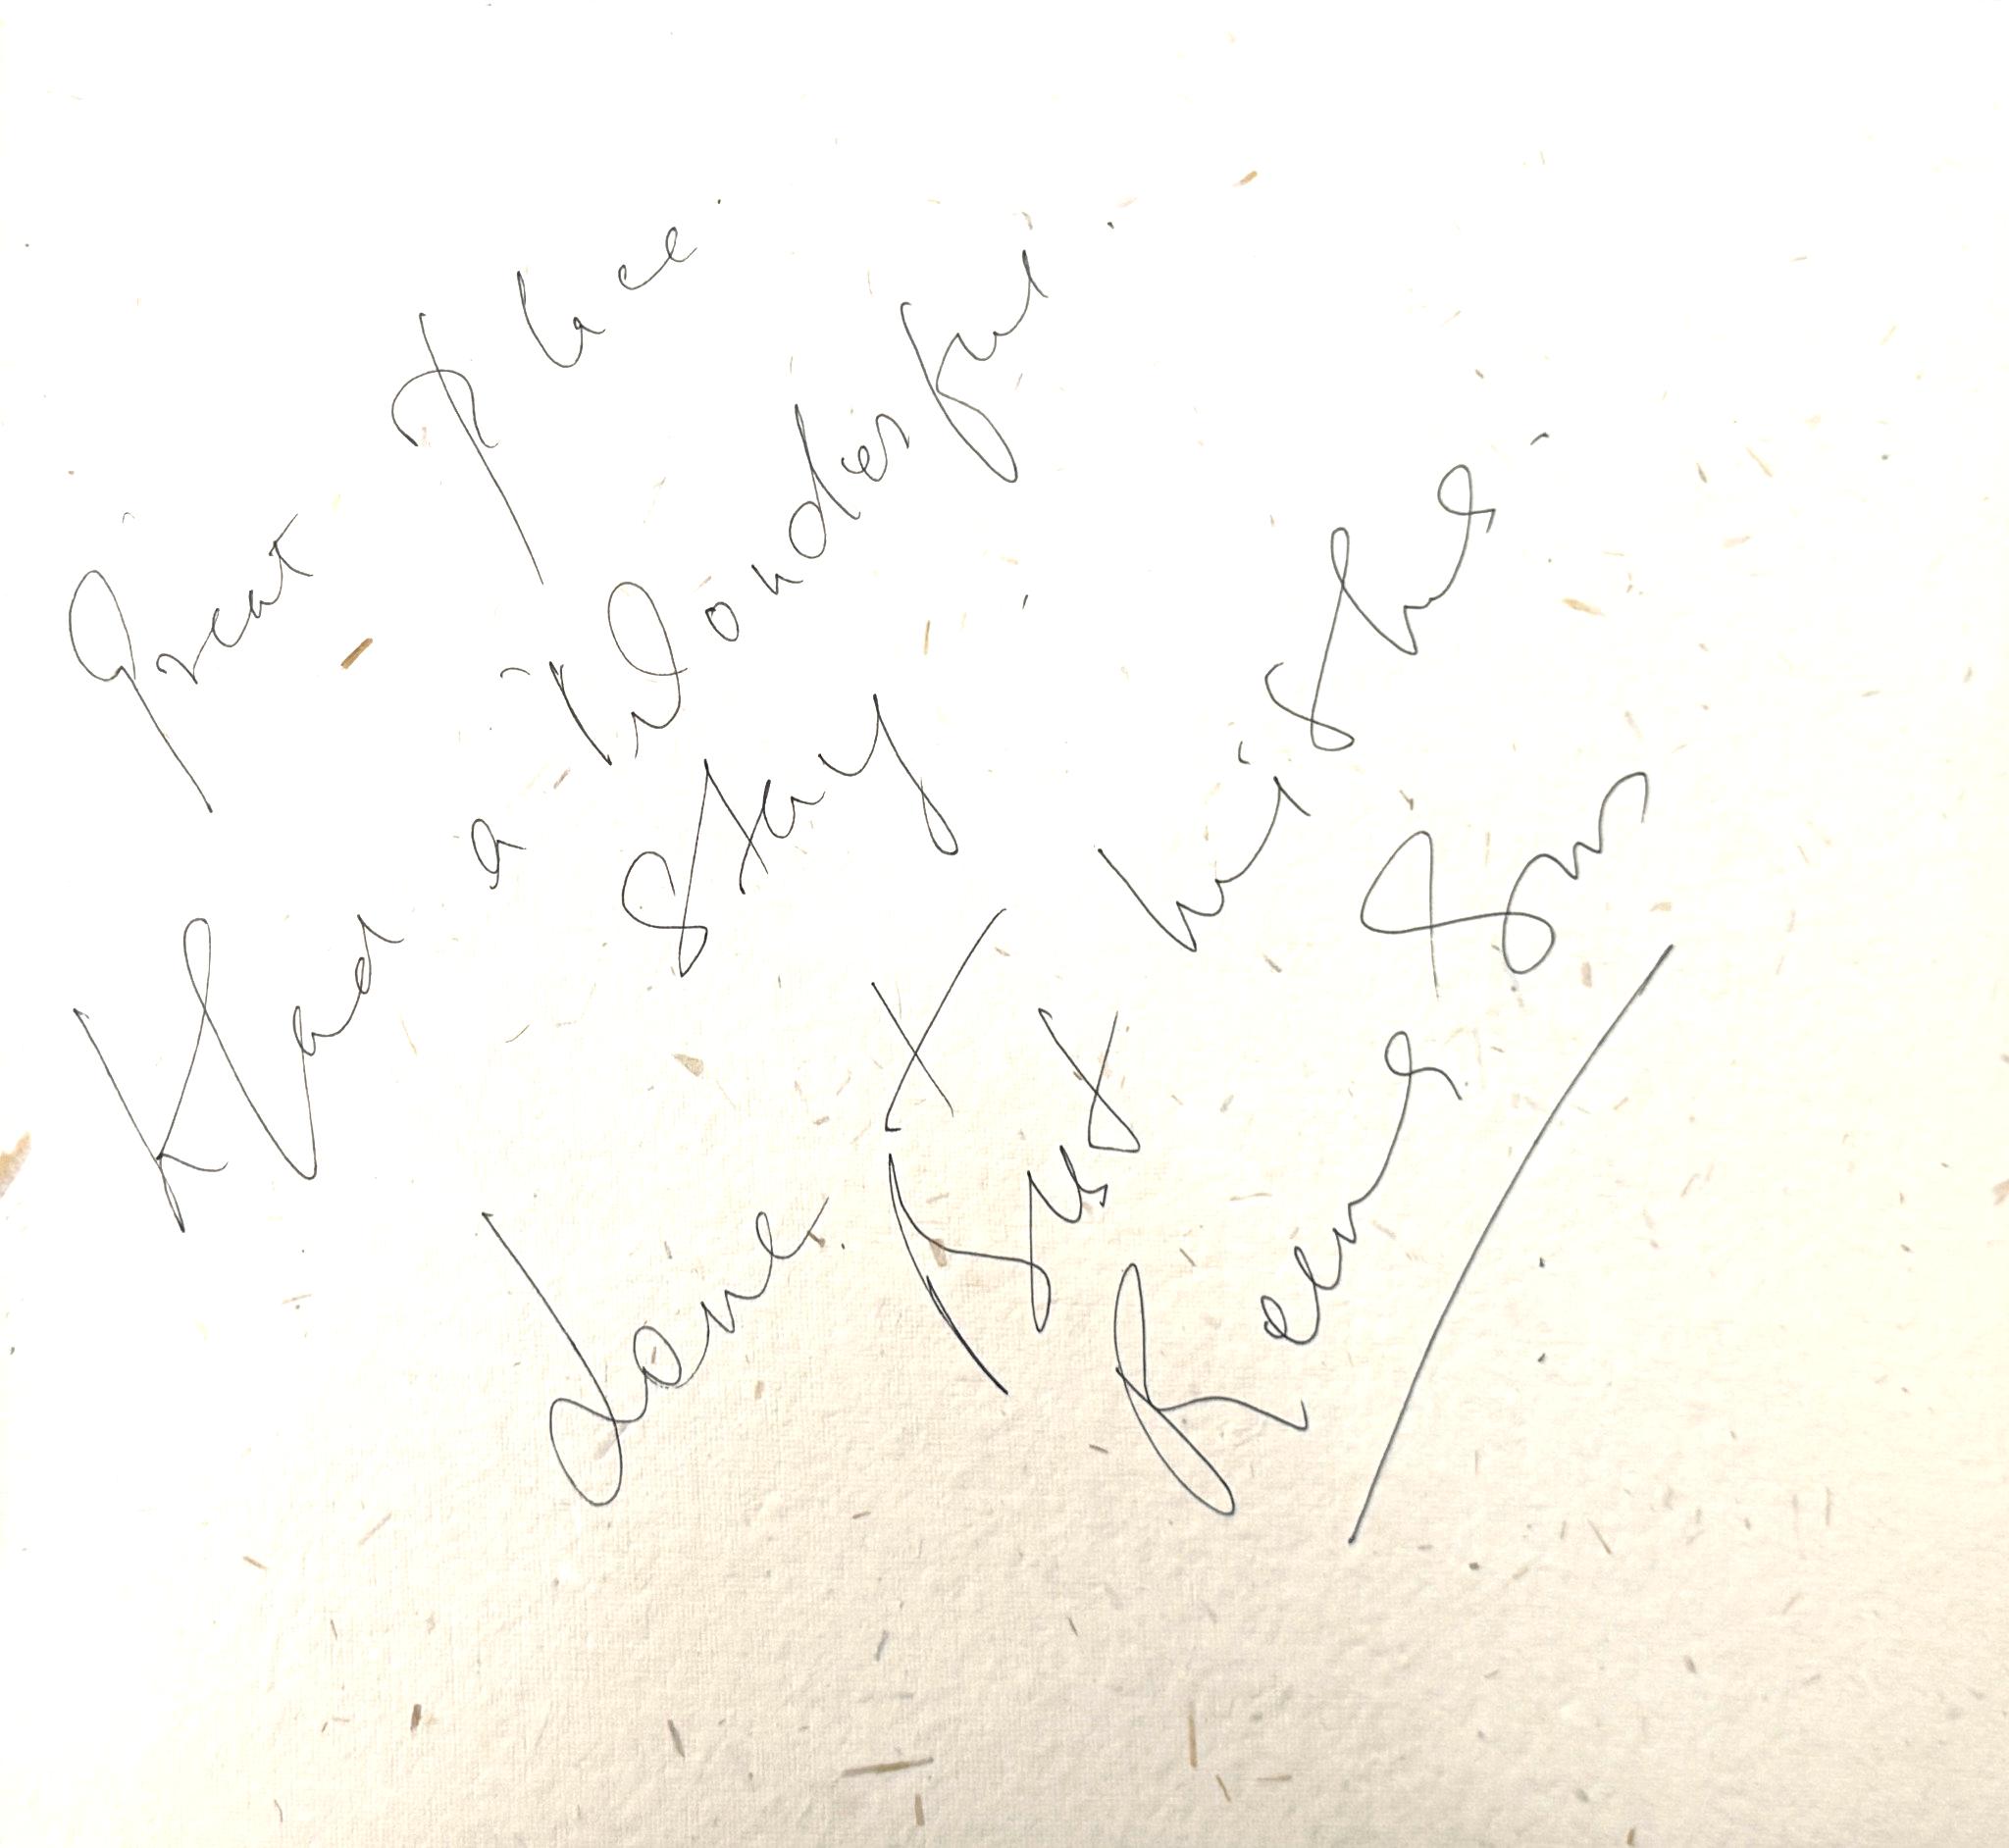 Great Place.
Had a Wonderful.
Stay.
Love &
Best wishes.